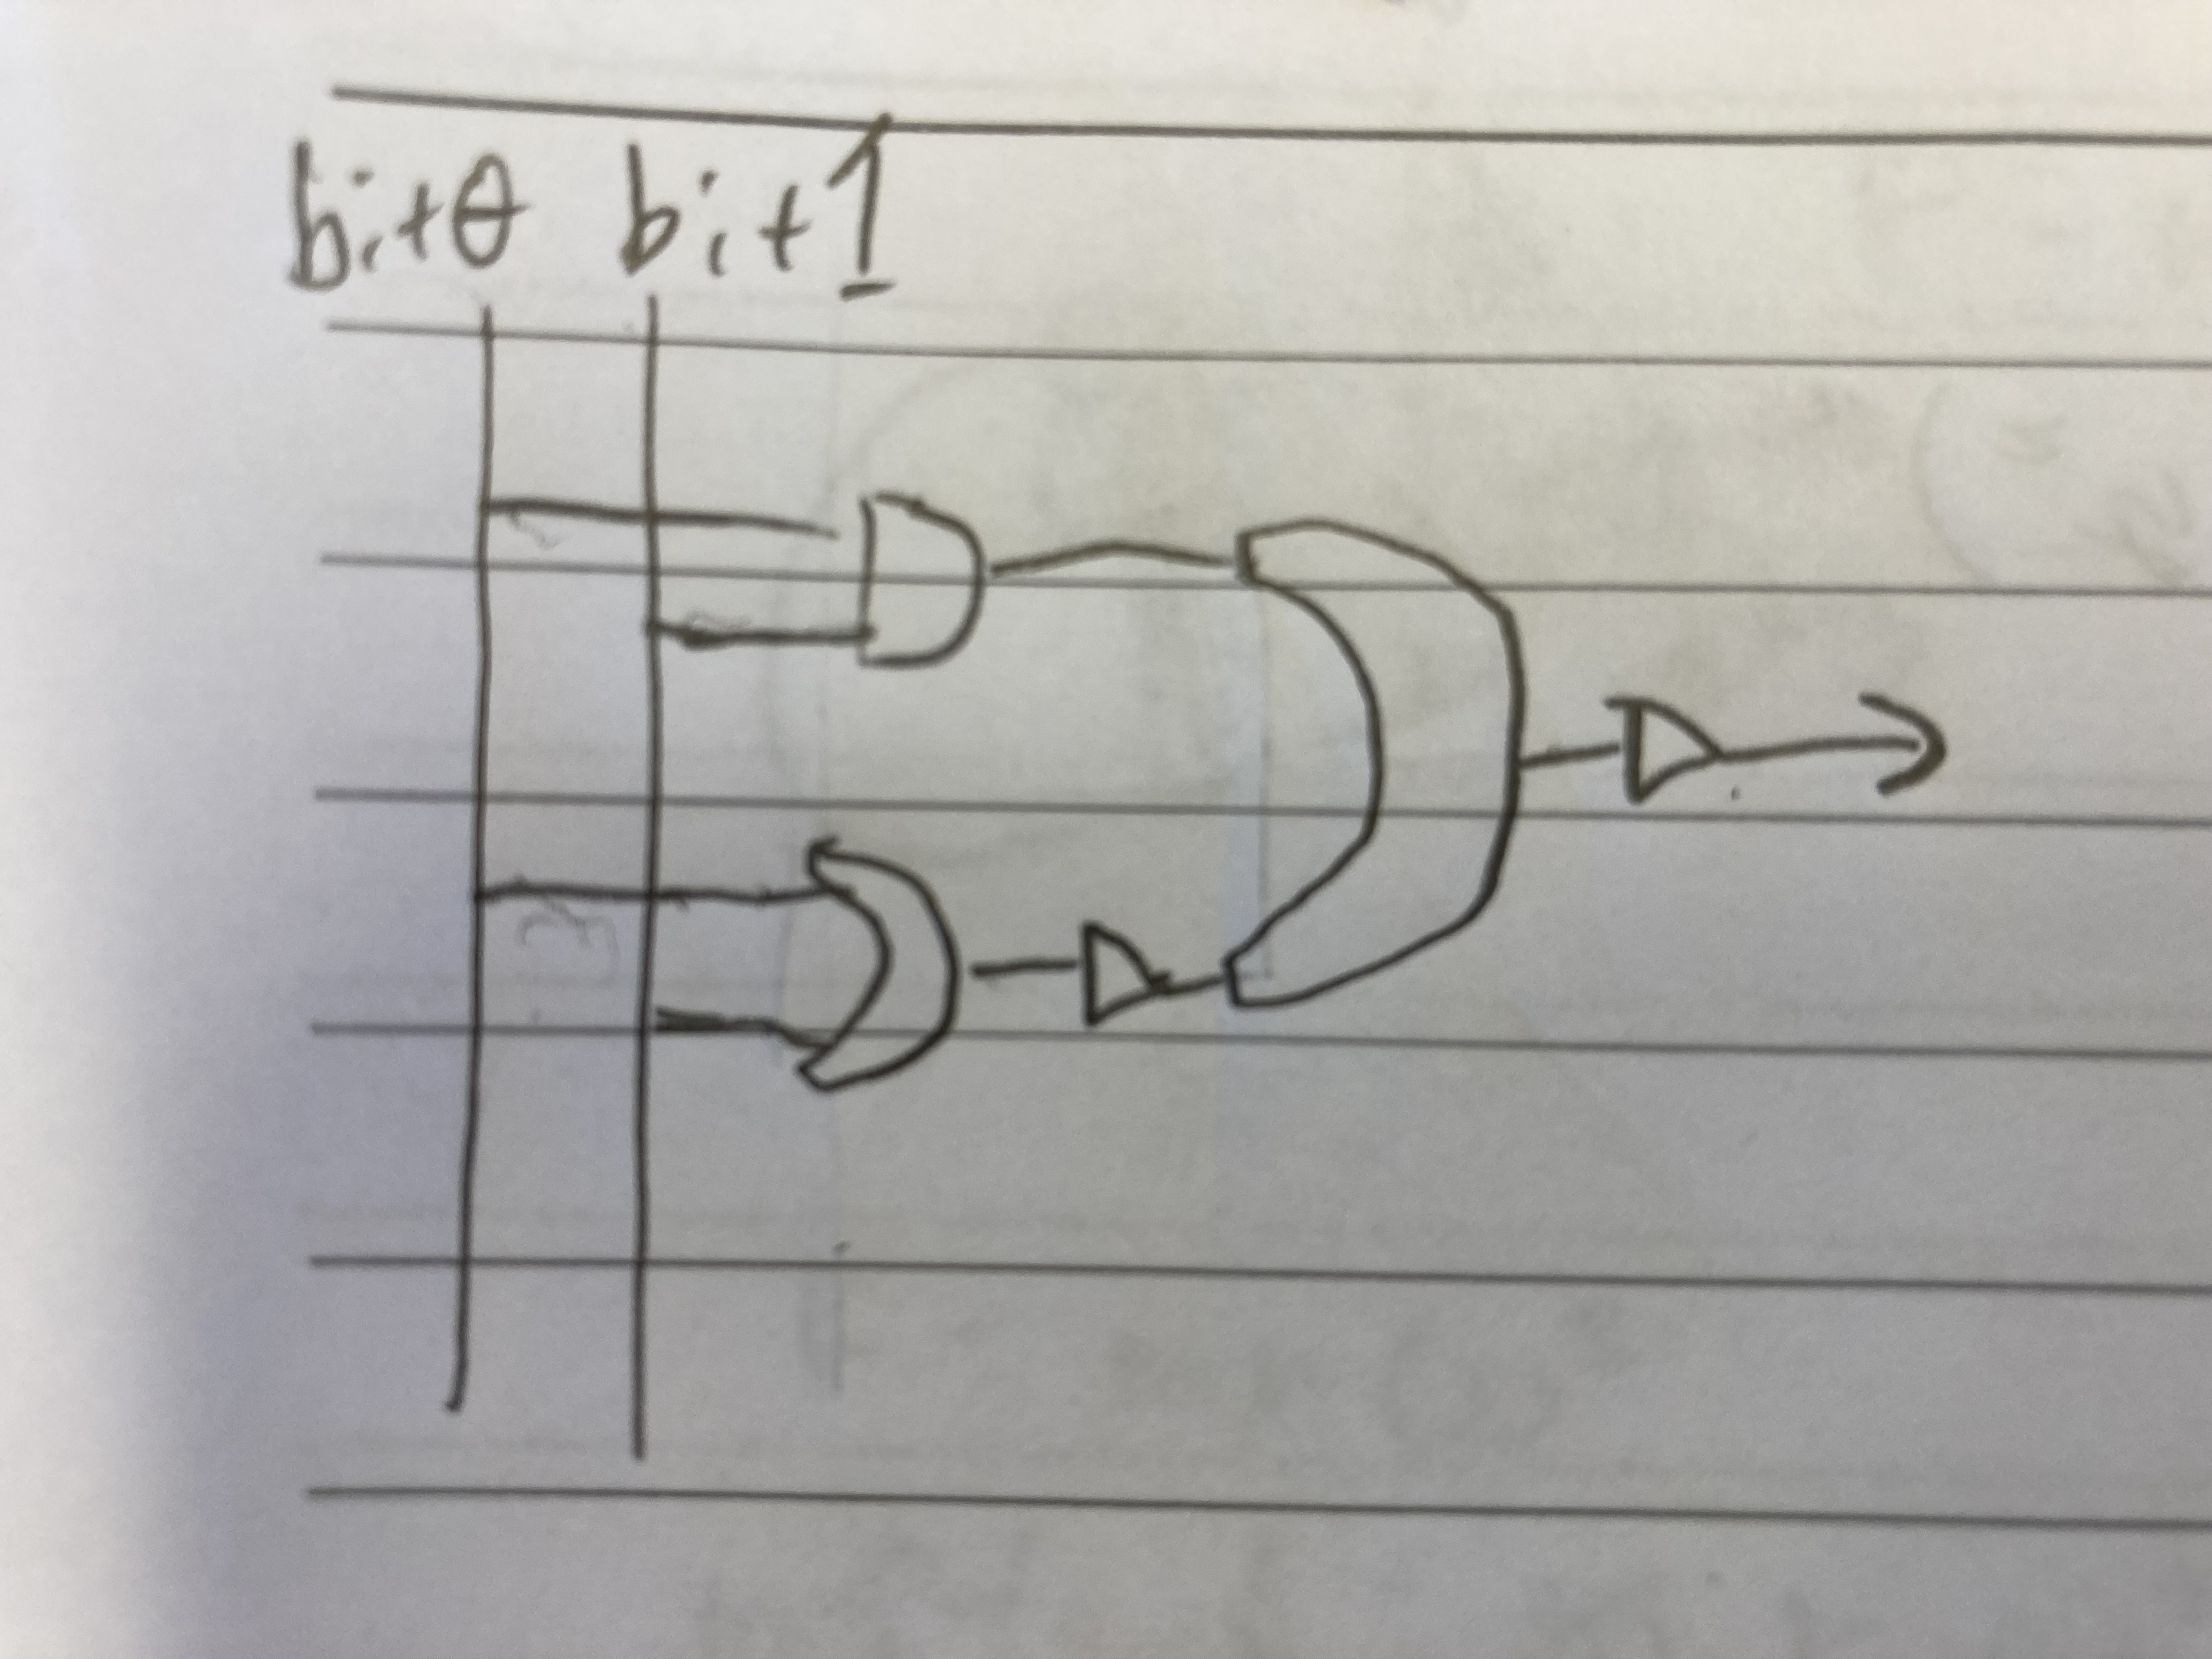 bit0 bit1